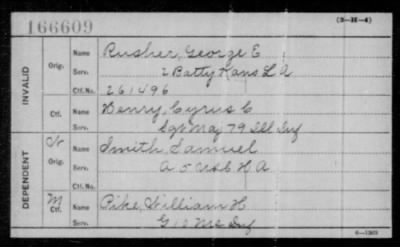 166609
(3-H-4)
INVALID
Orig.
Name Rusher, George E
Serv. 2 Batty Kans L A
Ctf.No. 261496
Ctf.
Name Benry, Cyrus C
Serv. Sgt Maj 79 Ill Inf
DEPENDENT
W
Orig.
Name Smith Samuel
Serv. A 5 USC H A
Ctf. No.
M
Ctf.
Name Pike, William H.
Serv. G 10 Me Inf